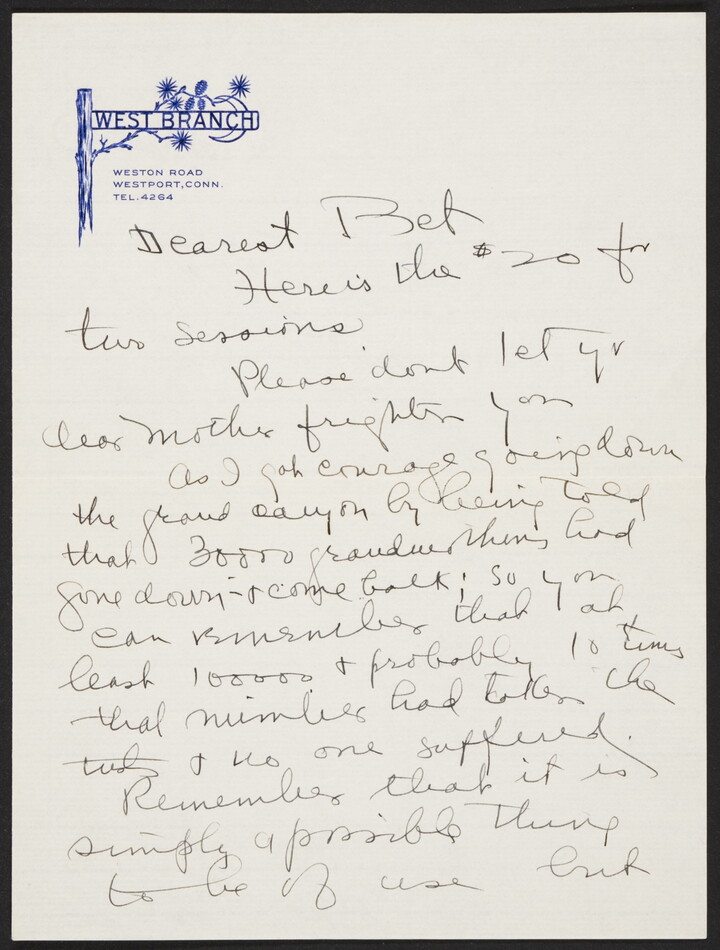 WEST BRANCH
WESTON ROAD
WESTPORT, CONN.
TEL. 4264
Dearest Bet
Here is the $20 for
two sessions
Please dont let yr
dear Mother frighten you
As I got courage going down
the grand canyon by being told
that 30000 grandmothers had
gone down - & come back; so you
can remember that at
least 100000 & probably 10 times
that number had taken the
tests & no one suffered.
Remember that it is
simply a possible thing
to be of use but